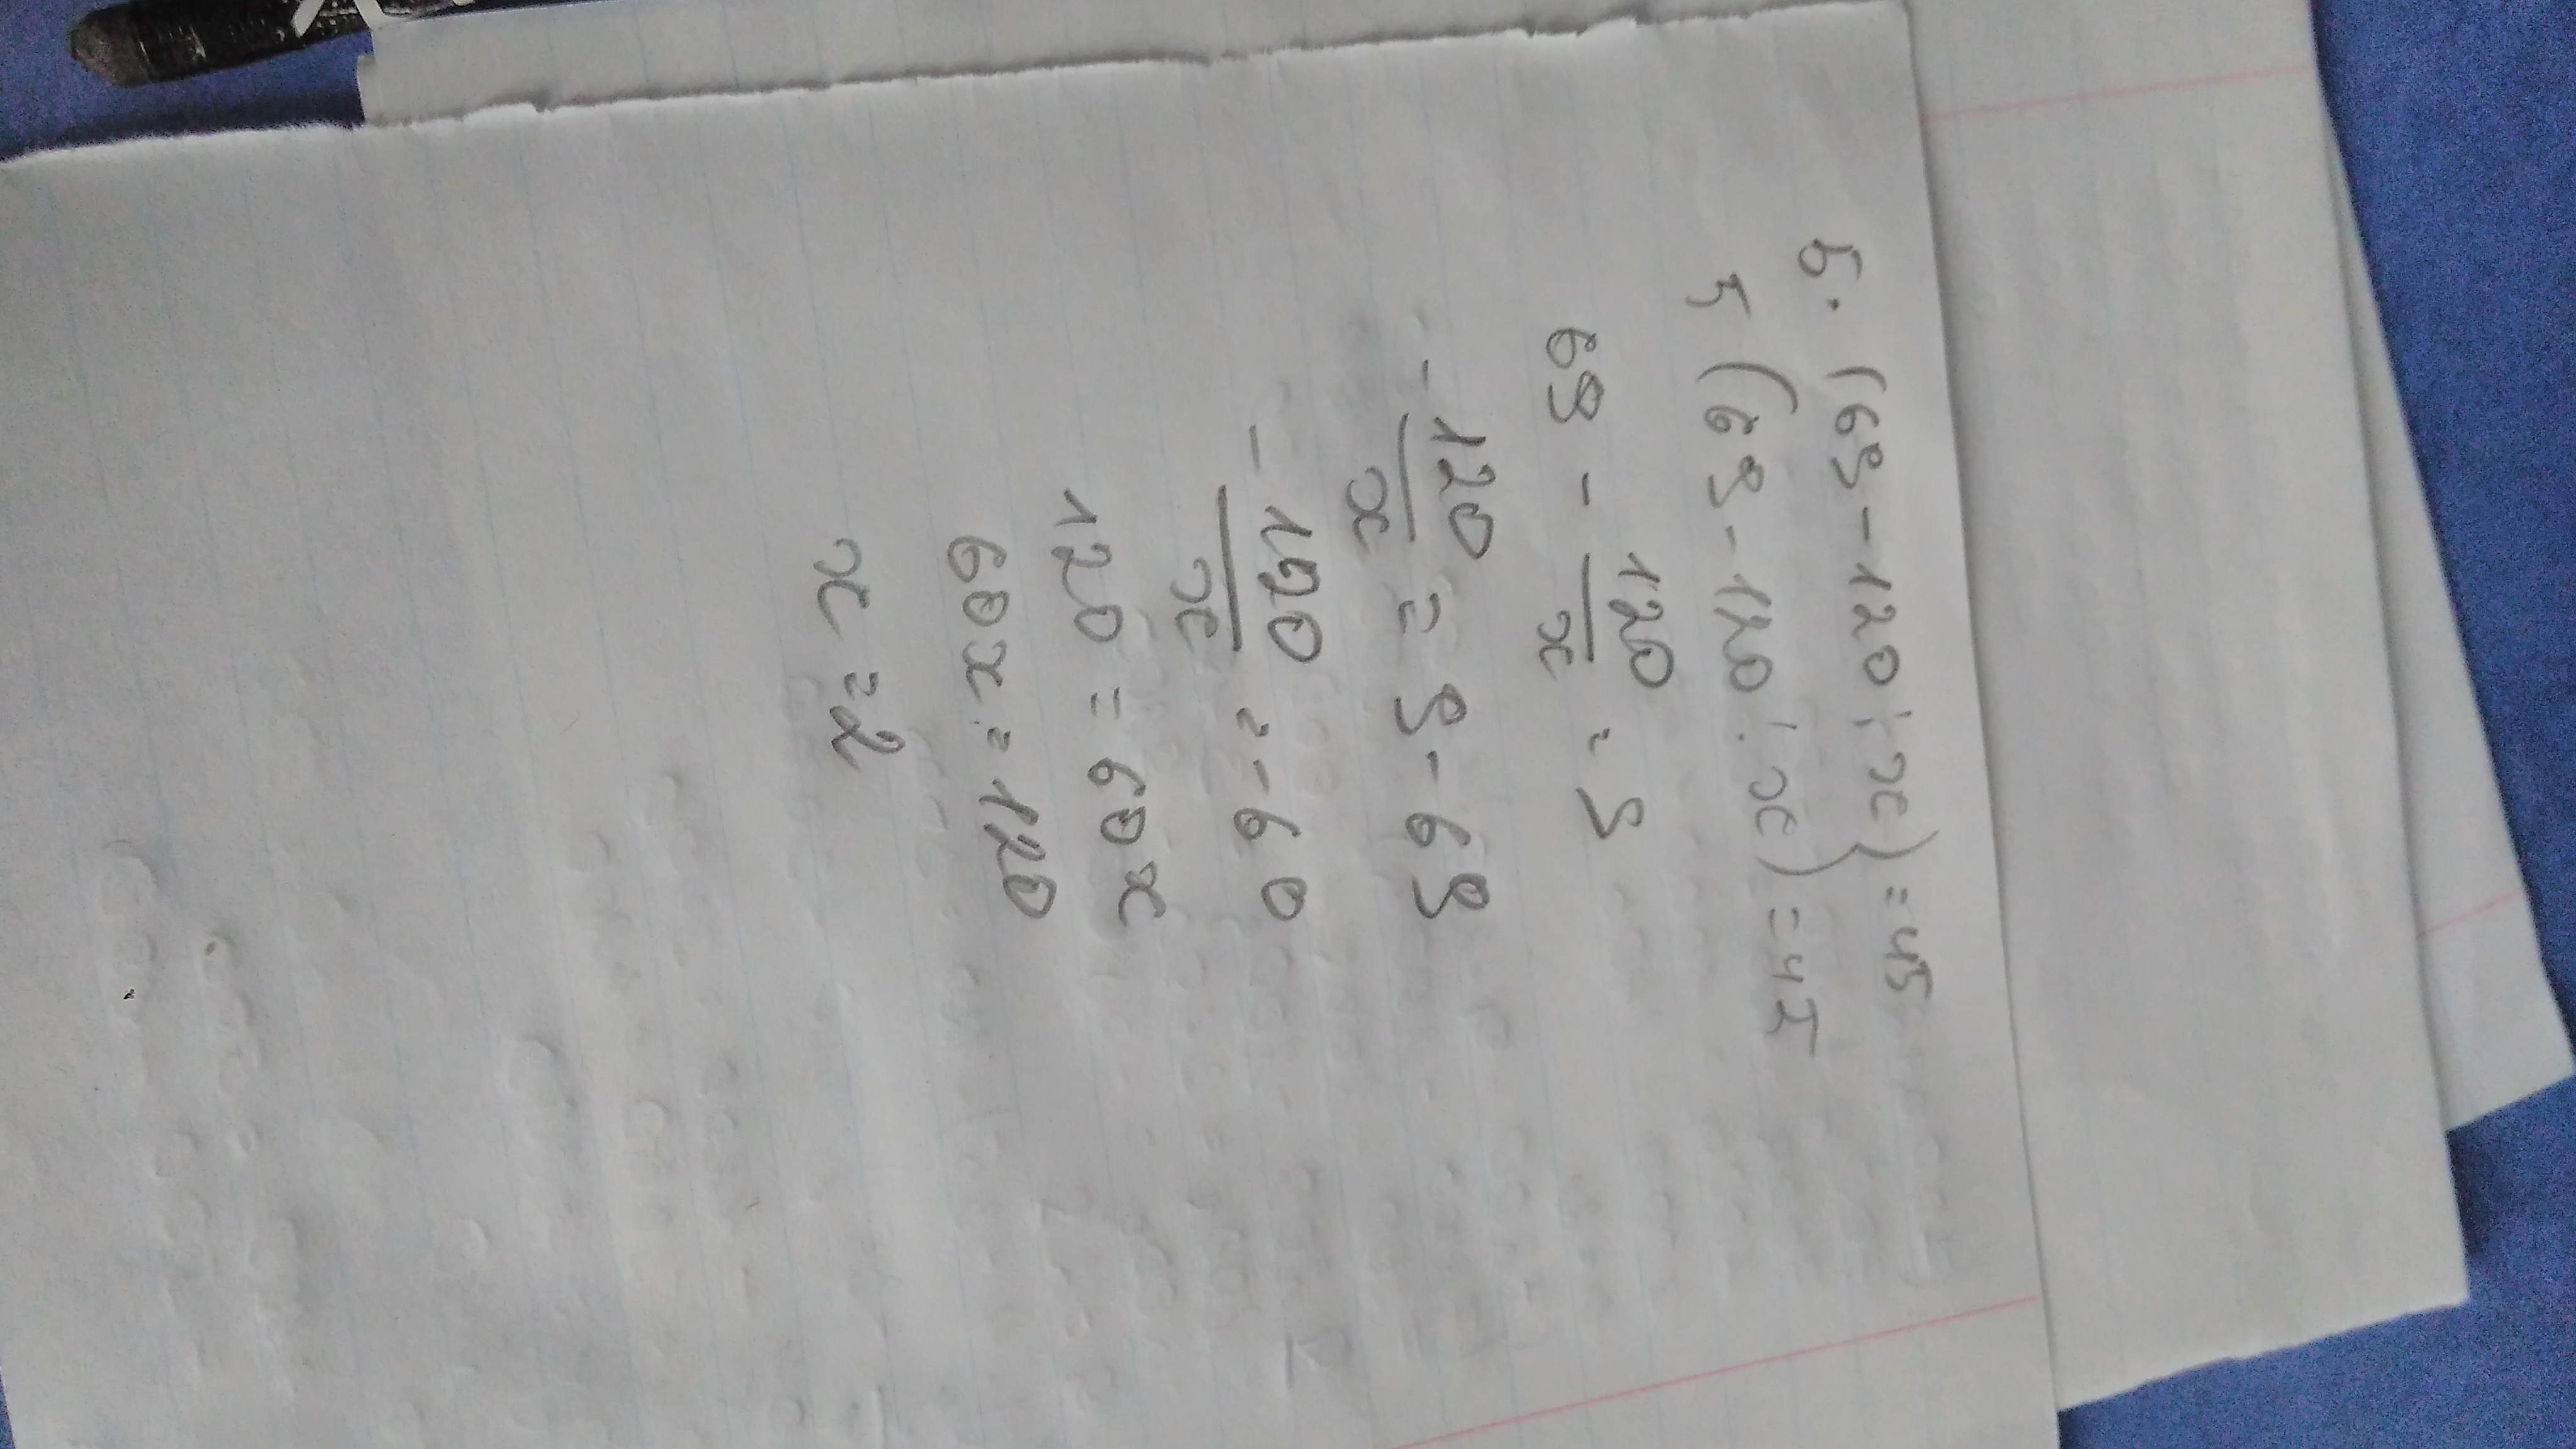 5. (69-120:x)=45
5(69-120:x)=45
69 - 120/x = 9
- 120/x = 9 - 69
- 120/x = - 60
120 = 60x
60x = 120
x = 2